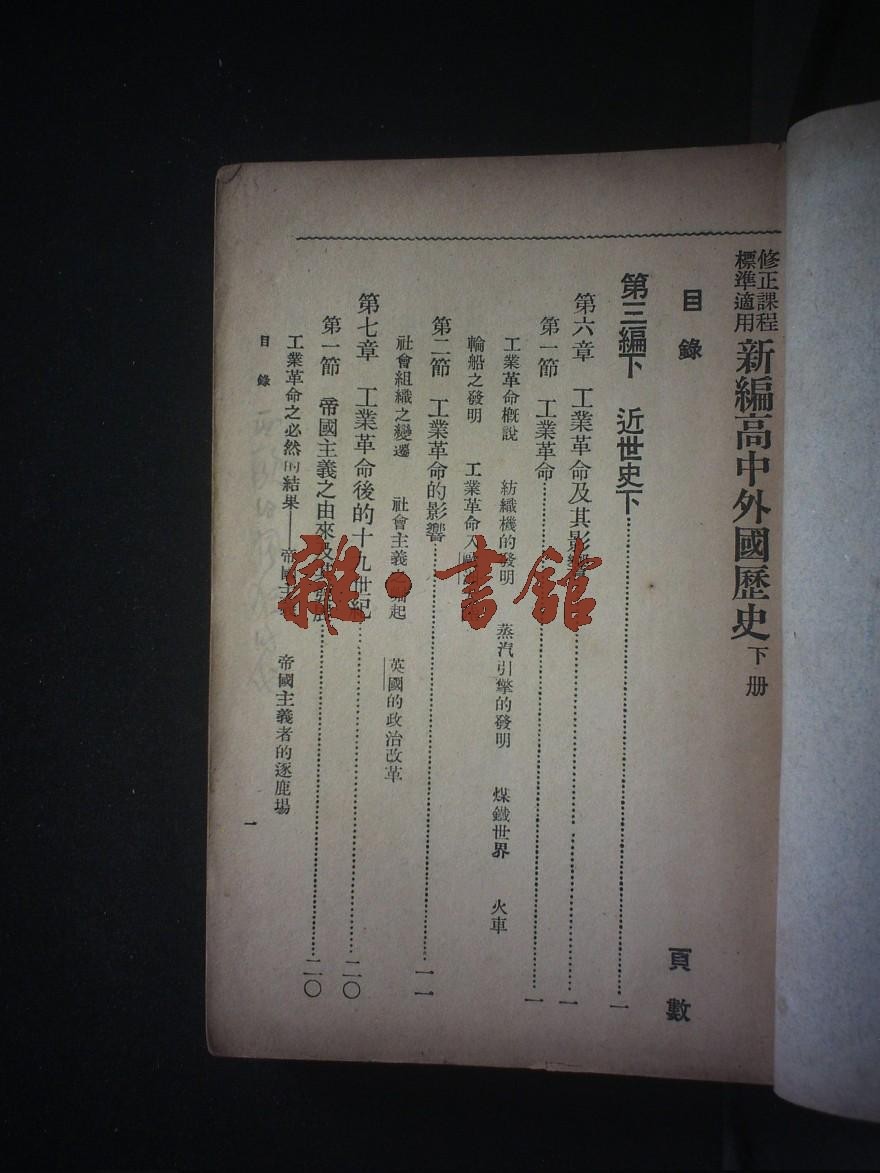 修正課程
標準適用
新編高中外國歷史 下册
目錄 頁數
第三編下 近世史下……一
第六章 工業革命及其影響……一
第一節 工業革命……一
工業革命概說 紡織機的發明 蒸汽引擎的發明 煤鐵世界 火車
輪船之發明 工業革命
第二節 工業革命的影響……一一
社會組織之變遷 社會主義 起 英國的政治改革
第七章 工業革命後的十九世紀……二〇
第一節 帝國主義之由來及……二〇
工業革命之必然的結果——帝國主 帝國主義者的逐鹿場
目錄 一
雜·書館